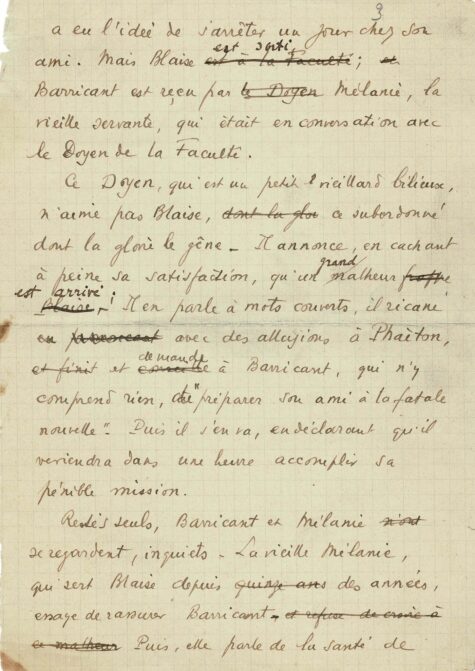 3
a eu l'idée de s'arrêter un jour chez son
ami. Mais Blaise est à la Faculté; est sorti; et
Barricant est reçu par le Doyen Mélanie, la
vieille servante, qui était en conversation avec
le Doyen de la Faculté.
Ce Doyen, qui est un petit vieillard bilieux,
n'aime pas Blaise, dont la gloi ce subordonné
dont la gloire le gêne - Il annonce, en cachant
à peine sa satisfaction, qu'un grand malheur frappe
Blaise - est arrivé; Il en parle à mots couverts, il ricane
en avec des allusions à Phaëton,
et finit et conseille demande à Barricant, qui n'y
comprend rien, de "préparer son ami à la fatale
nouvelle". Puis il s'en va, en déclarant qu'il
reviendra dans une heure accomplir sa
pénible mission.
Restés seuls, Barricant et Mélanie n'ont
se regardent, inquiets - La vieille Mélanie,
qui sert Blaise depuis quinze ans des années,
essaye de rassurer Barricant - et refuse de croire à
ce malheur Puis, elle parle de la santé de